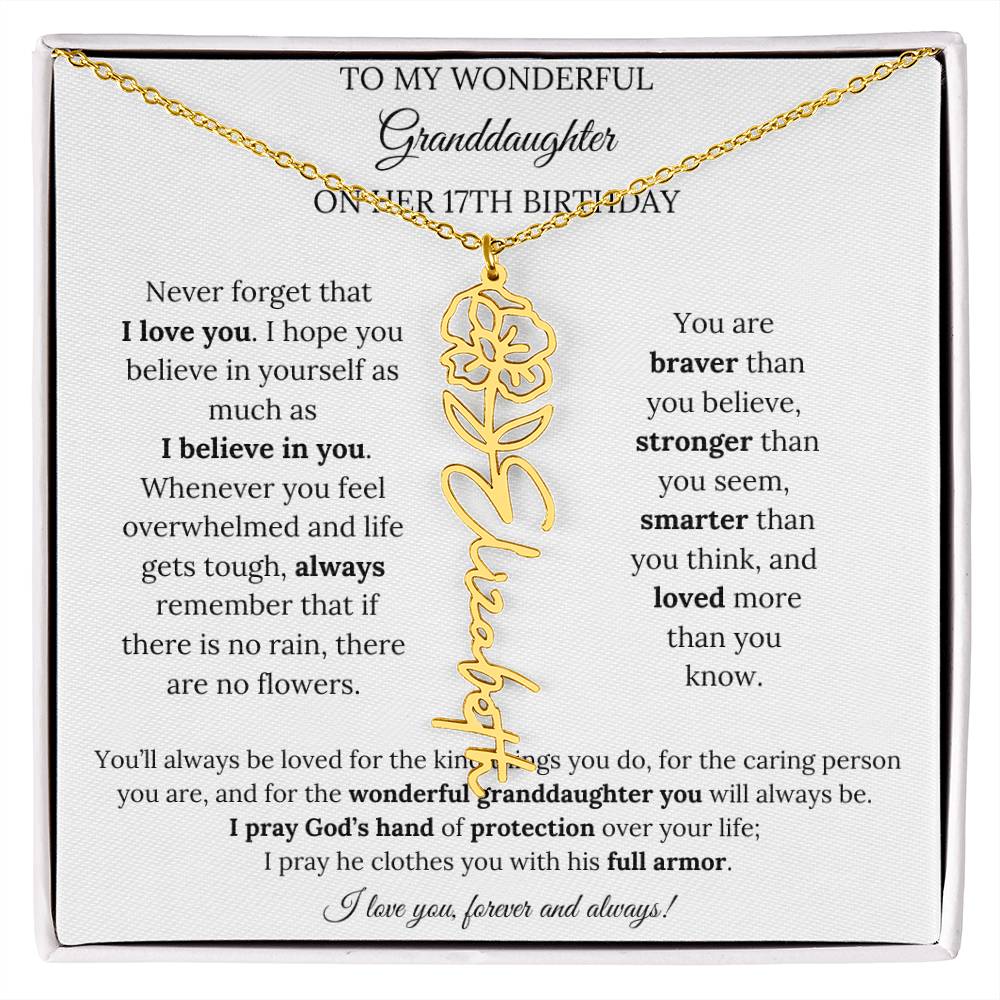 TO MY WONDERFUL
Granddaughter
ON HER 17TH BIRTHDAY
Never forget that
I love you. I hope you
believe in yourself as
much as
I believe in you.
Whenever you feel
overwhelmed and life
gets tough, always
remember that if
there is no rain, there
are no flowers.
Elizabeth
You are
braver than
you believe,
stronger than
you seem,
smarter than
you think, and
loved more
than you
know.
You'll always be loved for the kind things you do, for the caring person
you are, and for the wonderful granddaughter you will always be.
I pray God's hand of protection over your life;
I pray he clothes you with his full armor.
I love you, forever and always!